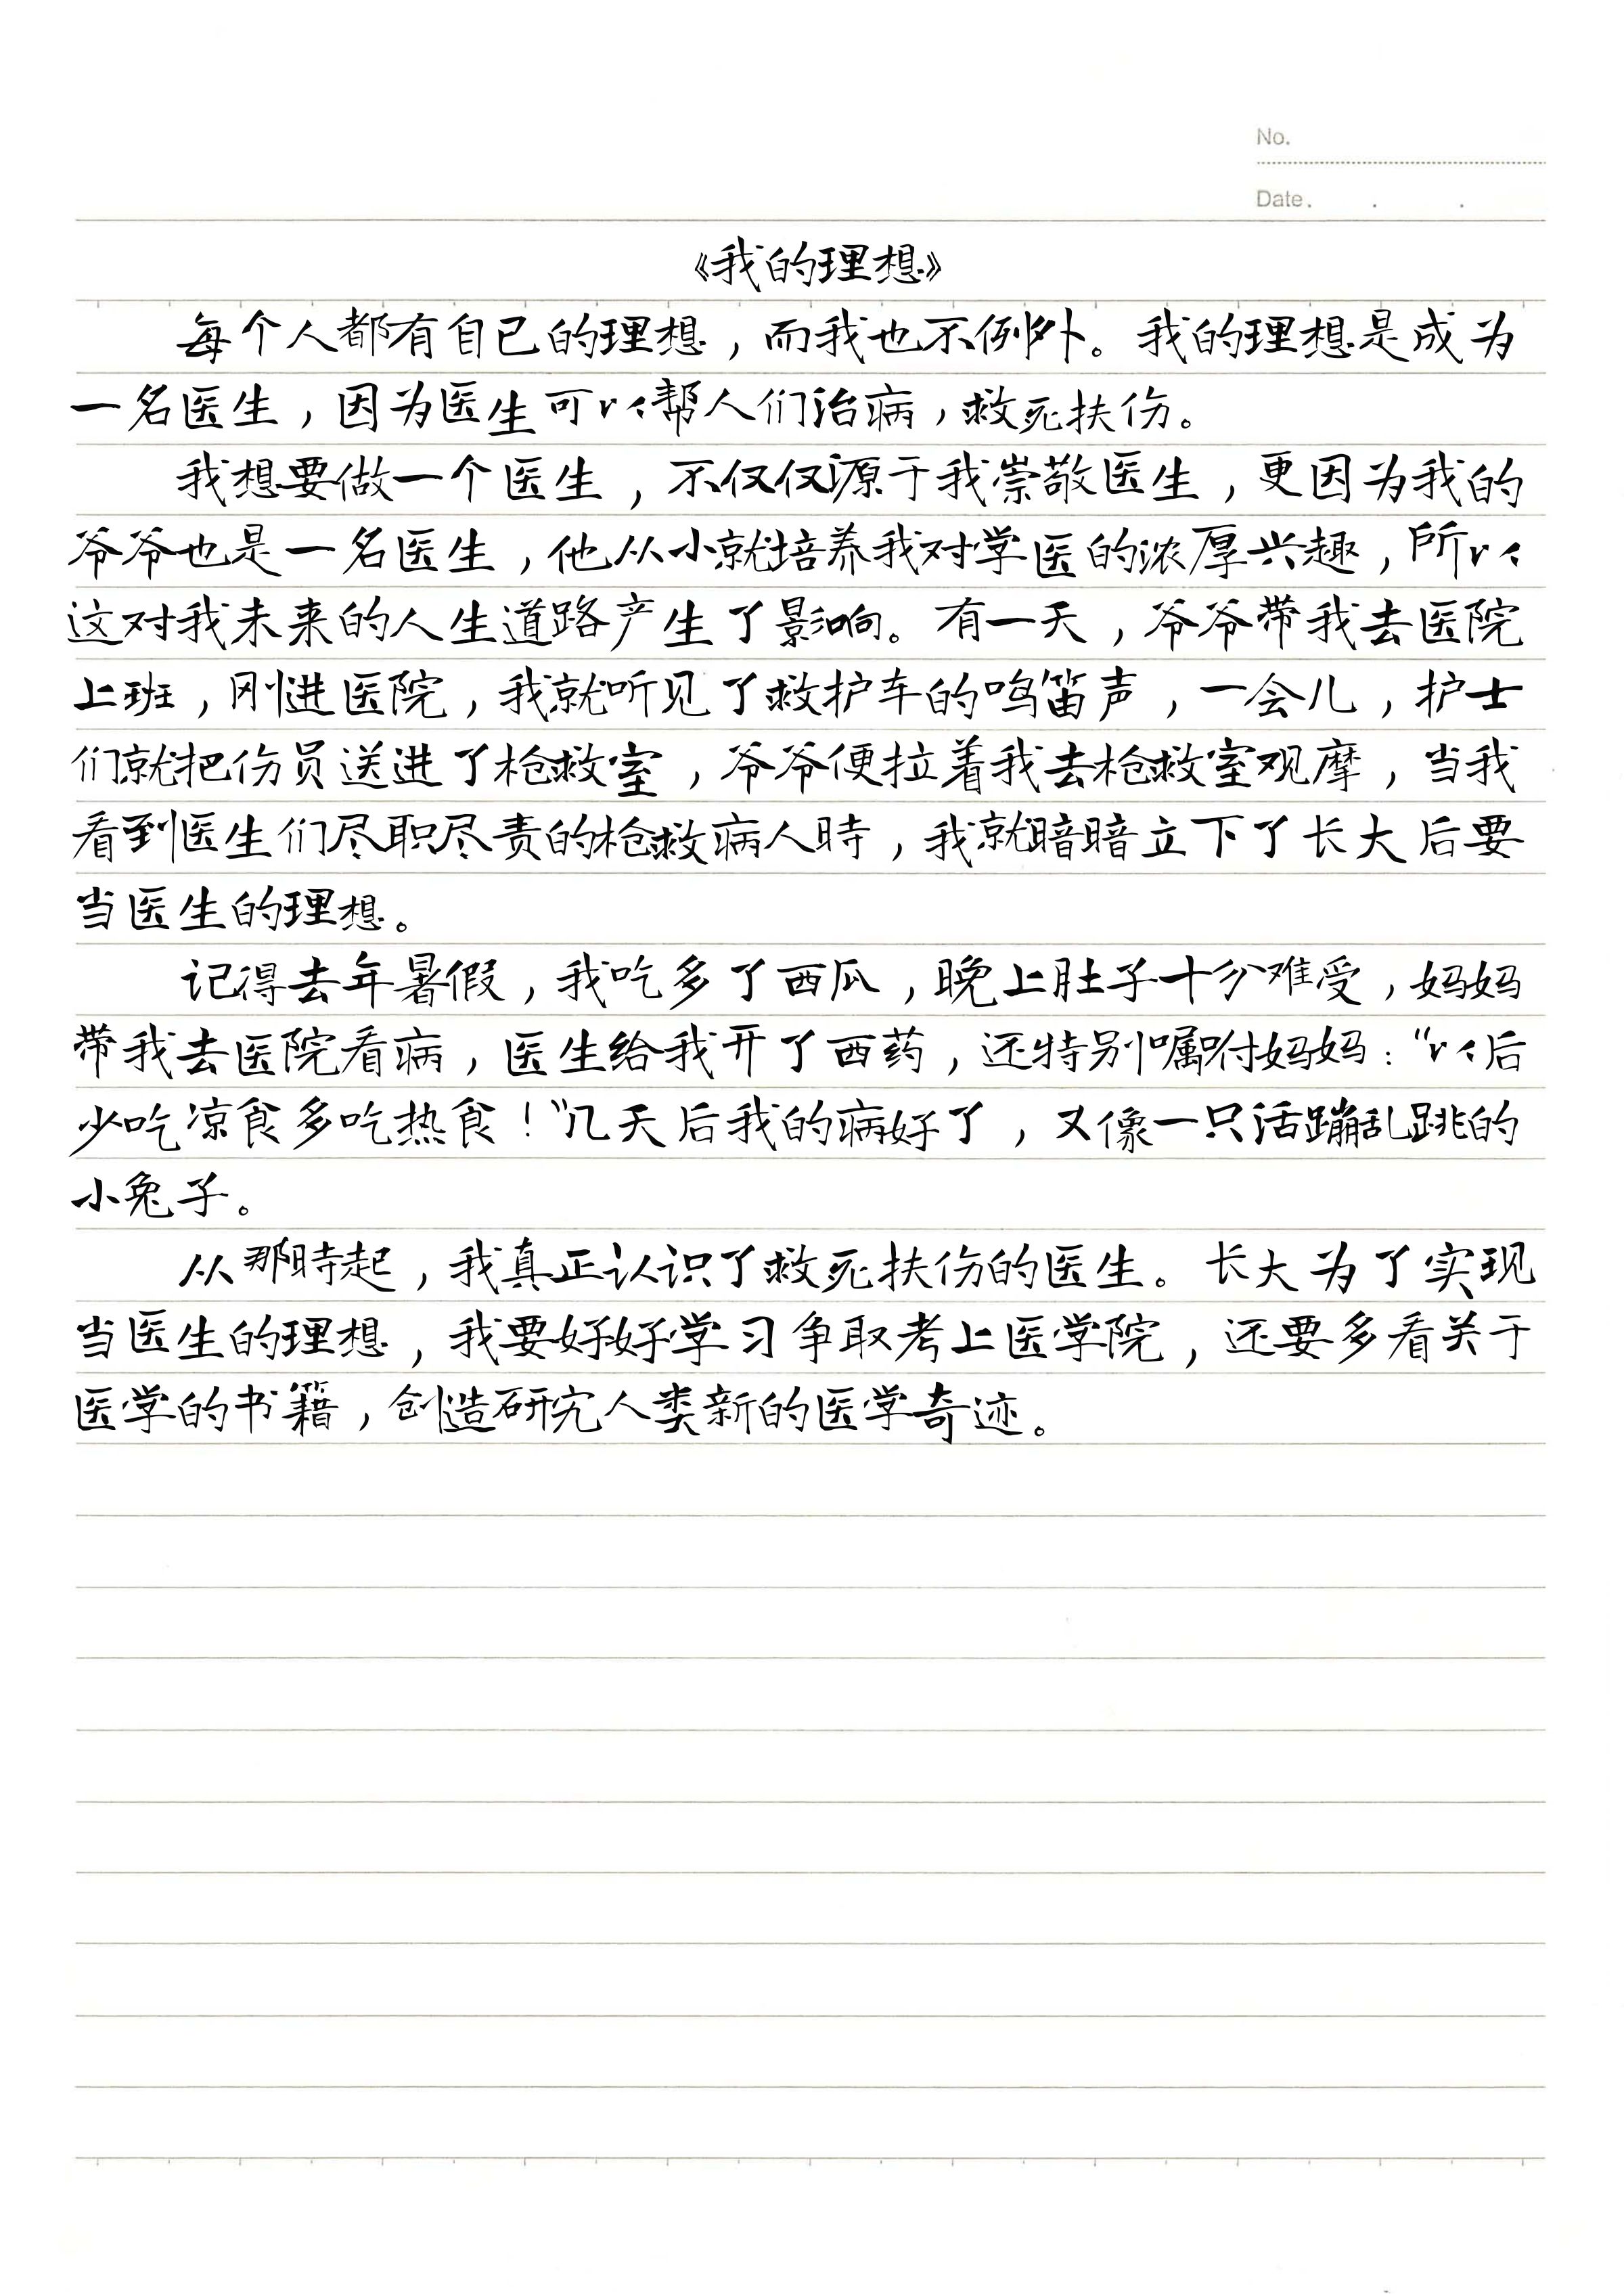 No.
Date. . .
《我的理想》
每个人都有自己的理想，而我也不例外。我的理想是成为
一名医生，因为医生可以帮人们治病，救死扶伤。
我想要做一个医生，不仅仅源于我崇敬医生，更因为我的
爷爷也是一名医生，他从小就培养我对学医的浓厚兴趣，所以
这对我未来的人生道路产生了影响。有一天，爷爷带我去医院
上班，刚进医院，我就听见了救护车的鸣笛声，一会儿，护士
们就把伤员送进了枪救室，爷爷便拉着我去枪救室观摩，当我
看到医生们尽职尽责的枪救病人时，我就暗暗立下了长大后要
当医生的理想。
记得去年暑假，我吃多了西瓜，晚上肚子十分难受，妈妈
带我去医院看病，医生给我开了西药，还特别嘱咐妈妈：“以后
少吃凉食多吃热食！”几天后我的病好了，又像一只活蹦乱跳的
小兔子。
从那时起，我真正认识了救死扶伤的医生。长大为了实现
当医生的理想，我要好好学习争取考上医学院，还要多看关于
医学的书籍，创造研究人类新的医学奇迹。